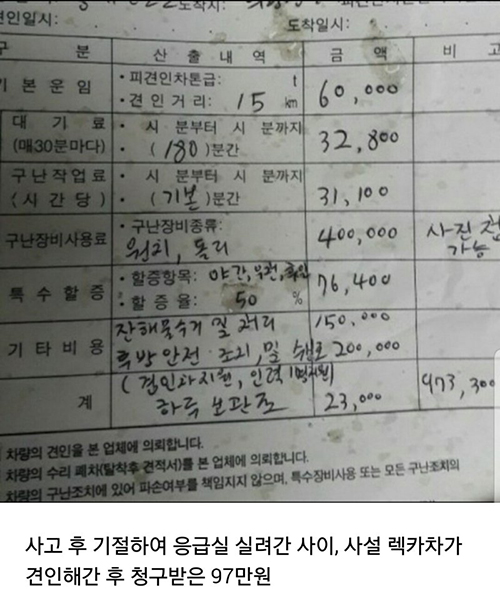 견인일시:
도착일시:
구 분 산 출 내 역 금 액 비 고
기 본 운 임 • 피견인차톤급: t
• 견 인 거 리: 15 km 60,000
대 기 료 • 시 분부터 시 분까지
(매30분마다) • (180)분간 32,800
구난작업료 • 시 분부터 시 분까지
(시 간 당) • (기본)분간 31,100
구난장비사용료 • 구난장비종류: 400,000 사진 첨
윈치, 돌리 가능
특 수 할 증 • 할증항목: 야간, 우천, 휴일 76,400
• 할 증 율: 50 %
기 타 비 용 잔해물수거 및 처리 150,000
후방 안전 조치, 및 200,000
계 (견인차지원, 인력 1명지원) 973,300
하루 보관료 23,000
차량의 견인을 본 업체에 의뢰합니다.
차량의 수리 폐차(탈착후 견적서)를 본 업체에 의뢰합니다.
차량의 구난조치에 있어 파손여부를 책임지지 않으며, 특수장비사용 또는 모든 구난조치의
사고 후 기절하여 응급실 실려간 사이, 사설 렉카차가
견인해간 후 청구받은 97만원